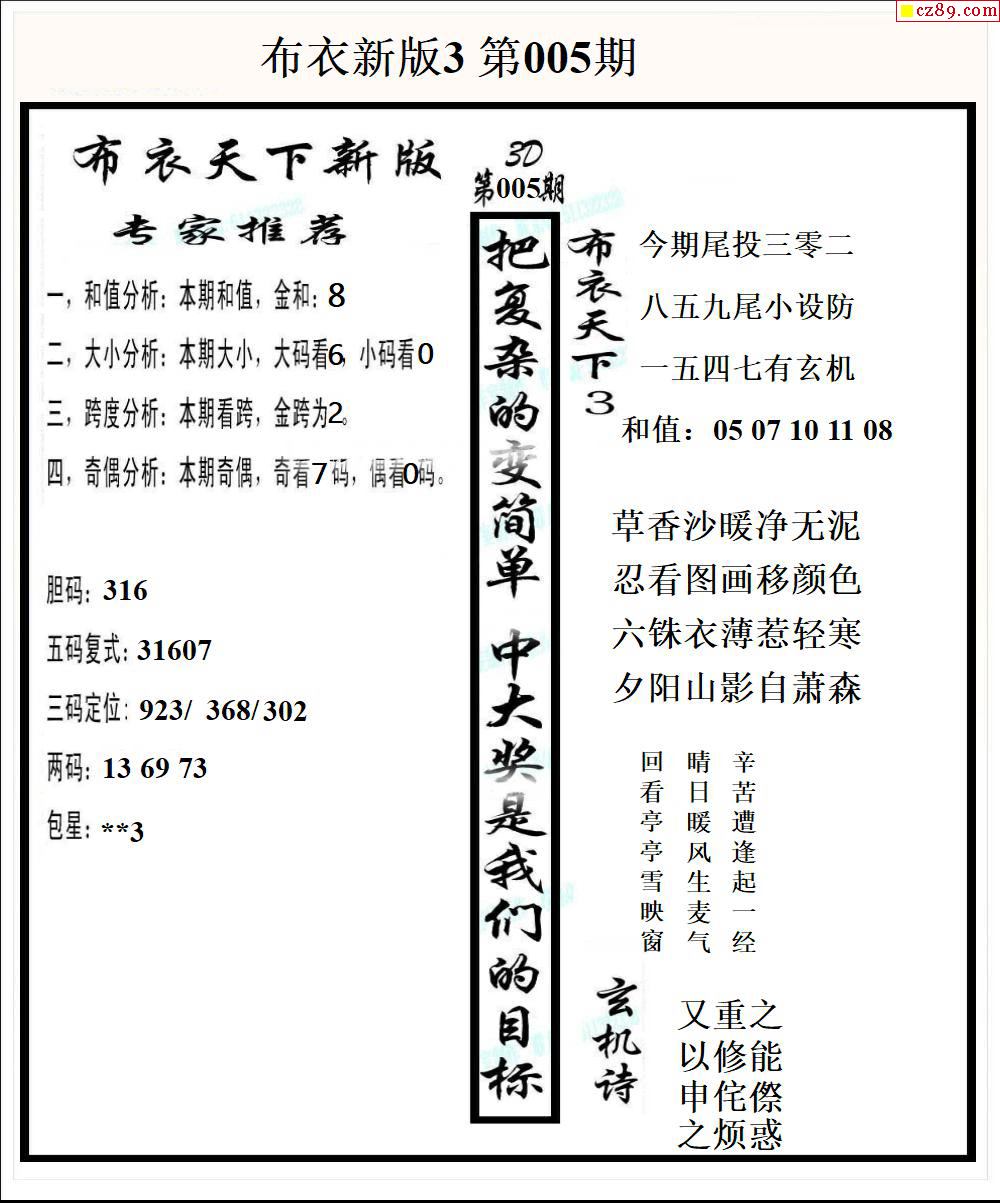 cz89.com
布衣新版3 第005期
布衣天下新版
专家推荐
一，和值分析：本期和值，金和：8
二，大小分析：本期大小，大码看6，小码看0
三，跨度分析：本期看跨，金跨为2。
四，奇偶分析：本期奇偶，奇看7码，偶看0码。
胆码：316
五码复式：31607
三码定位：923/ 368/302
两码：13 69 73
包星：**3
3D
第005期
把复杂的变简单 中大奖是我们的目标
布衣天下3
今期尾投三零二
八五九尾小设防
一五四七有玄机
和值：05 07 10 11 08
草香沙暖净无泥
忍看图画移颜色
六铢衣薄惹轻寒
夕阳山影自萧森
辛苦遭逢起一经
晴日暖风生麦气
回看亭亭雪映窗
玄机诗
又重之
以修能
申侘傺
之烦惑